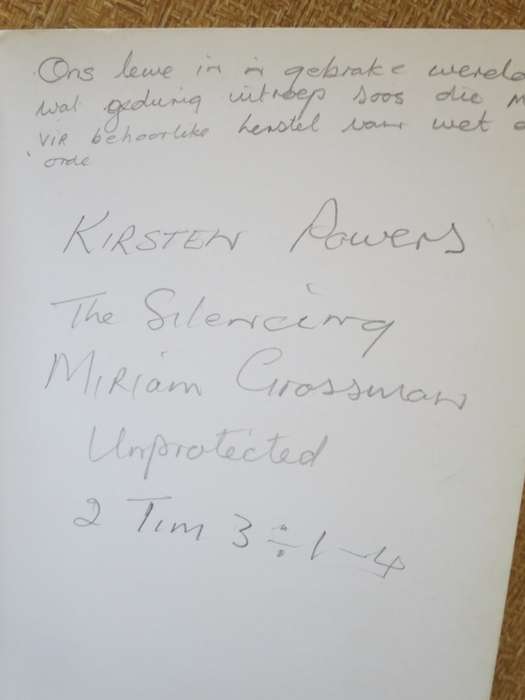 Ons lewe in 'n gebroke wereld
wat gedurig uitroep soos die
vir behoorlike herstel van wet
orde
KIRSTEN Powers
The Silencing
Miriam Grossman
Unprotected
2 Tim 3:1-4